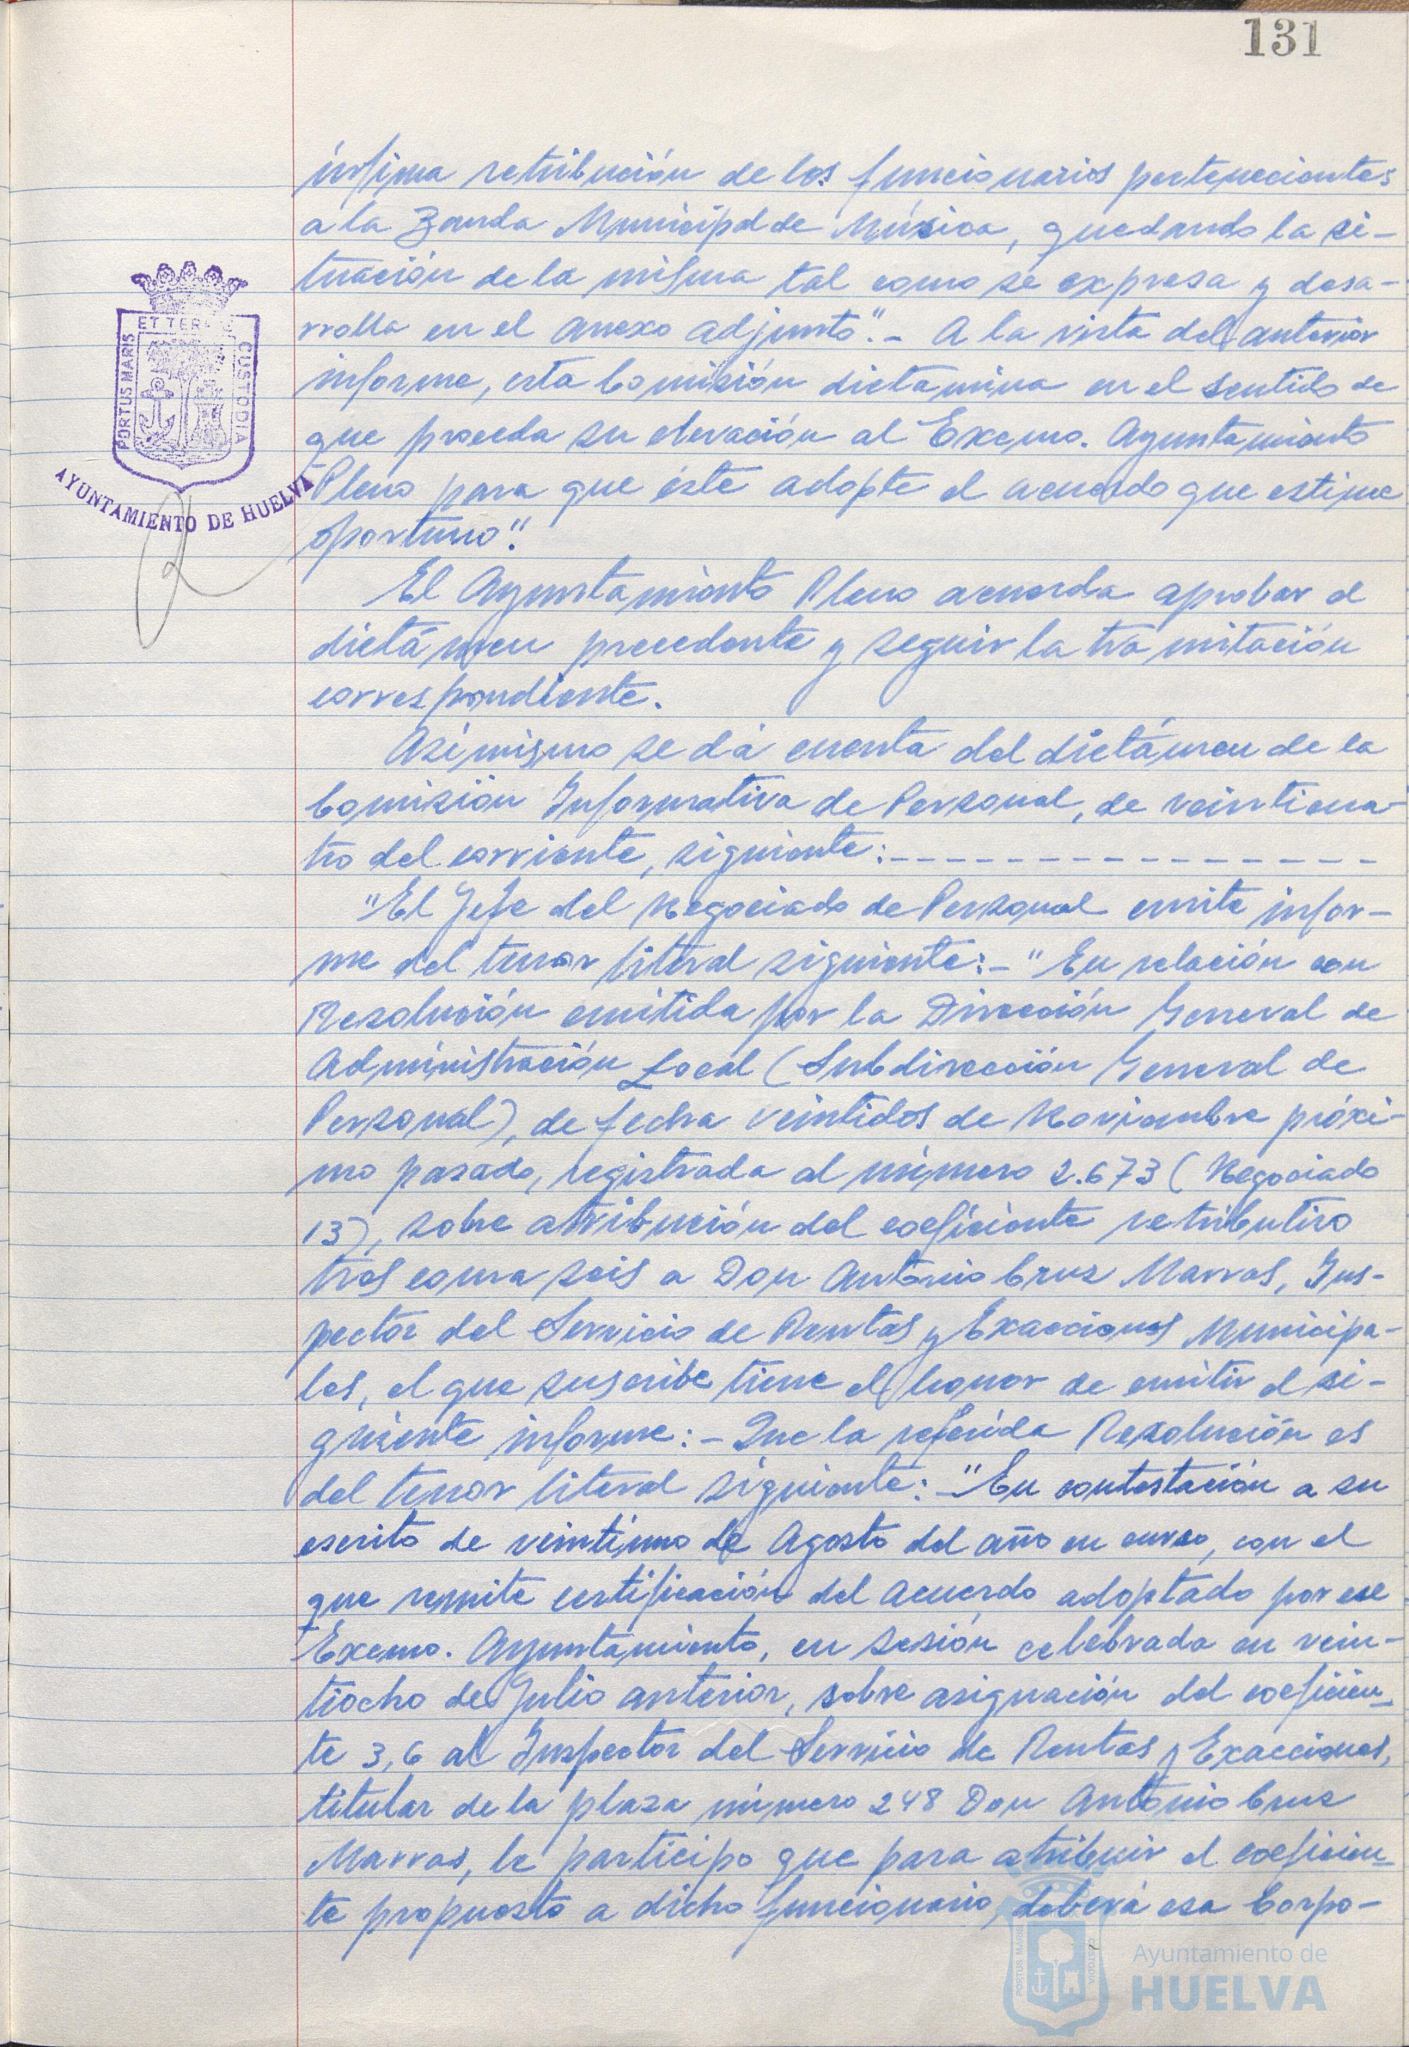 131
ínfima retribución de los funcionarios pertenecientes
a la Banda Municipal de Música, quedando la si-
tuación de la misma tal como se expresa y desa-
rrolla en el anexo adjunto".- A la vista del anterior
informe, esta Comisión dictamina en el sentido de
que proceda su elevación al Excmo. Ayuntamiento
Pleno para que éste adopte el acuerdo que estime
oportuno".
El Ayuntamiento Pleno acuerda aprobar el
dictámen precedente y seguir la tramitación
correspondiente.
Asimismo se dá cuenta del dictámen de la
Comisión Informativa de Personal, de veinticua-
tro del corriente, siguiente:---------------
"El Jefe del Negociado de Personal emite infor-
me del tenor literal siguiente:-"En relación con
Resolución emitida por la Dirección General de
Administración Local (Subdirección General de
Personal), de fecha veintidos de Noviembre próxi-
mo pasado, registrada al número 2.673 (Negociado
13), sobre atribución del coeficiente retributivo
tres coma seis a Don Antonio Cruz Marras, Ins-
pector del Servicio de Rentas y Exacciones Municipa-
les, el que suscribe tiene el honor de emitir el si-
guiente informe:-Que la referida Resolución es
del tenor literal siguiente:-"En contestación a su
escrito de veintiuno de Agosto del año en curso, con el
que remite certificación del acuerdo adoptado por ese
Excmo. Ayuntamiento, en sesión celebrada en vein-
tiocho de Julio anterior, sobre asignación del coeficien-
te 3,6 al Inspector del Servicio de Rentas y Exacciones,
titular de la plaza número 248 Don Antonio Cruz
Marras, le participo que para atribuir el coeficien-
te propuesto a dicho funcionario, deberá esa Corpo-
PORTUS MARIS ET TERRE CUSTODIA
AYUNTAMIENTO DE HUELVA
Ayuntamiento de
HUELVA